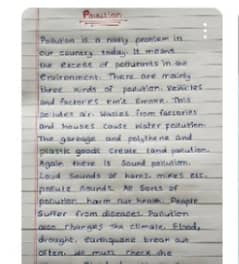 Pollution
Pollution is a major problem in
our country today. It means
the excess of pollutants in the
environment. There are mainly
three kinds of pollution. Vehicles
and factories emit smoke. This
pollutes air. Wastes from factories
and houses cause water pollution.
The garbage and polythene and
plastic goods create land pollution.
Again there is sound pollution.
Loud sounds of horns, mikes etc.
pollute sound. All sorts of
pollution harm our health. People
suffer from diseases. Pollution
also changes the climate. Flood,
drought, earthquake break out
often. We must check the